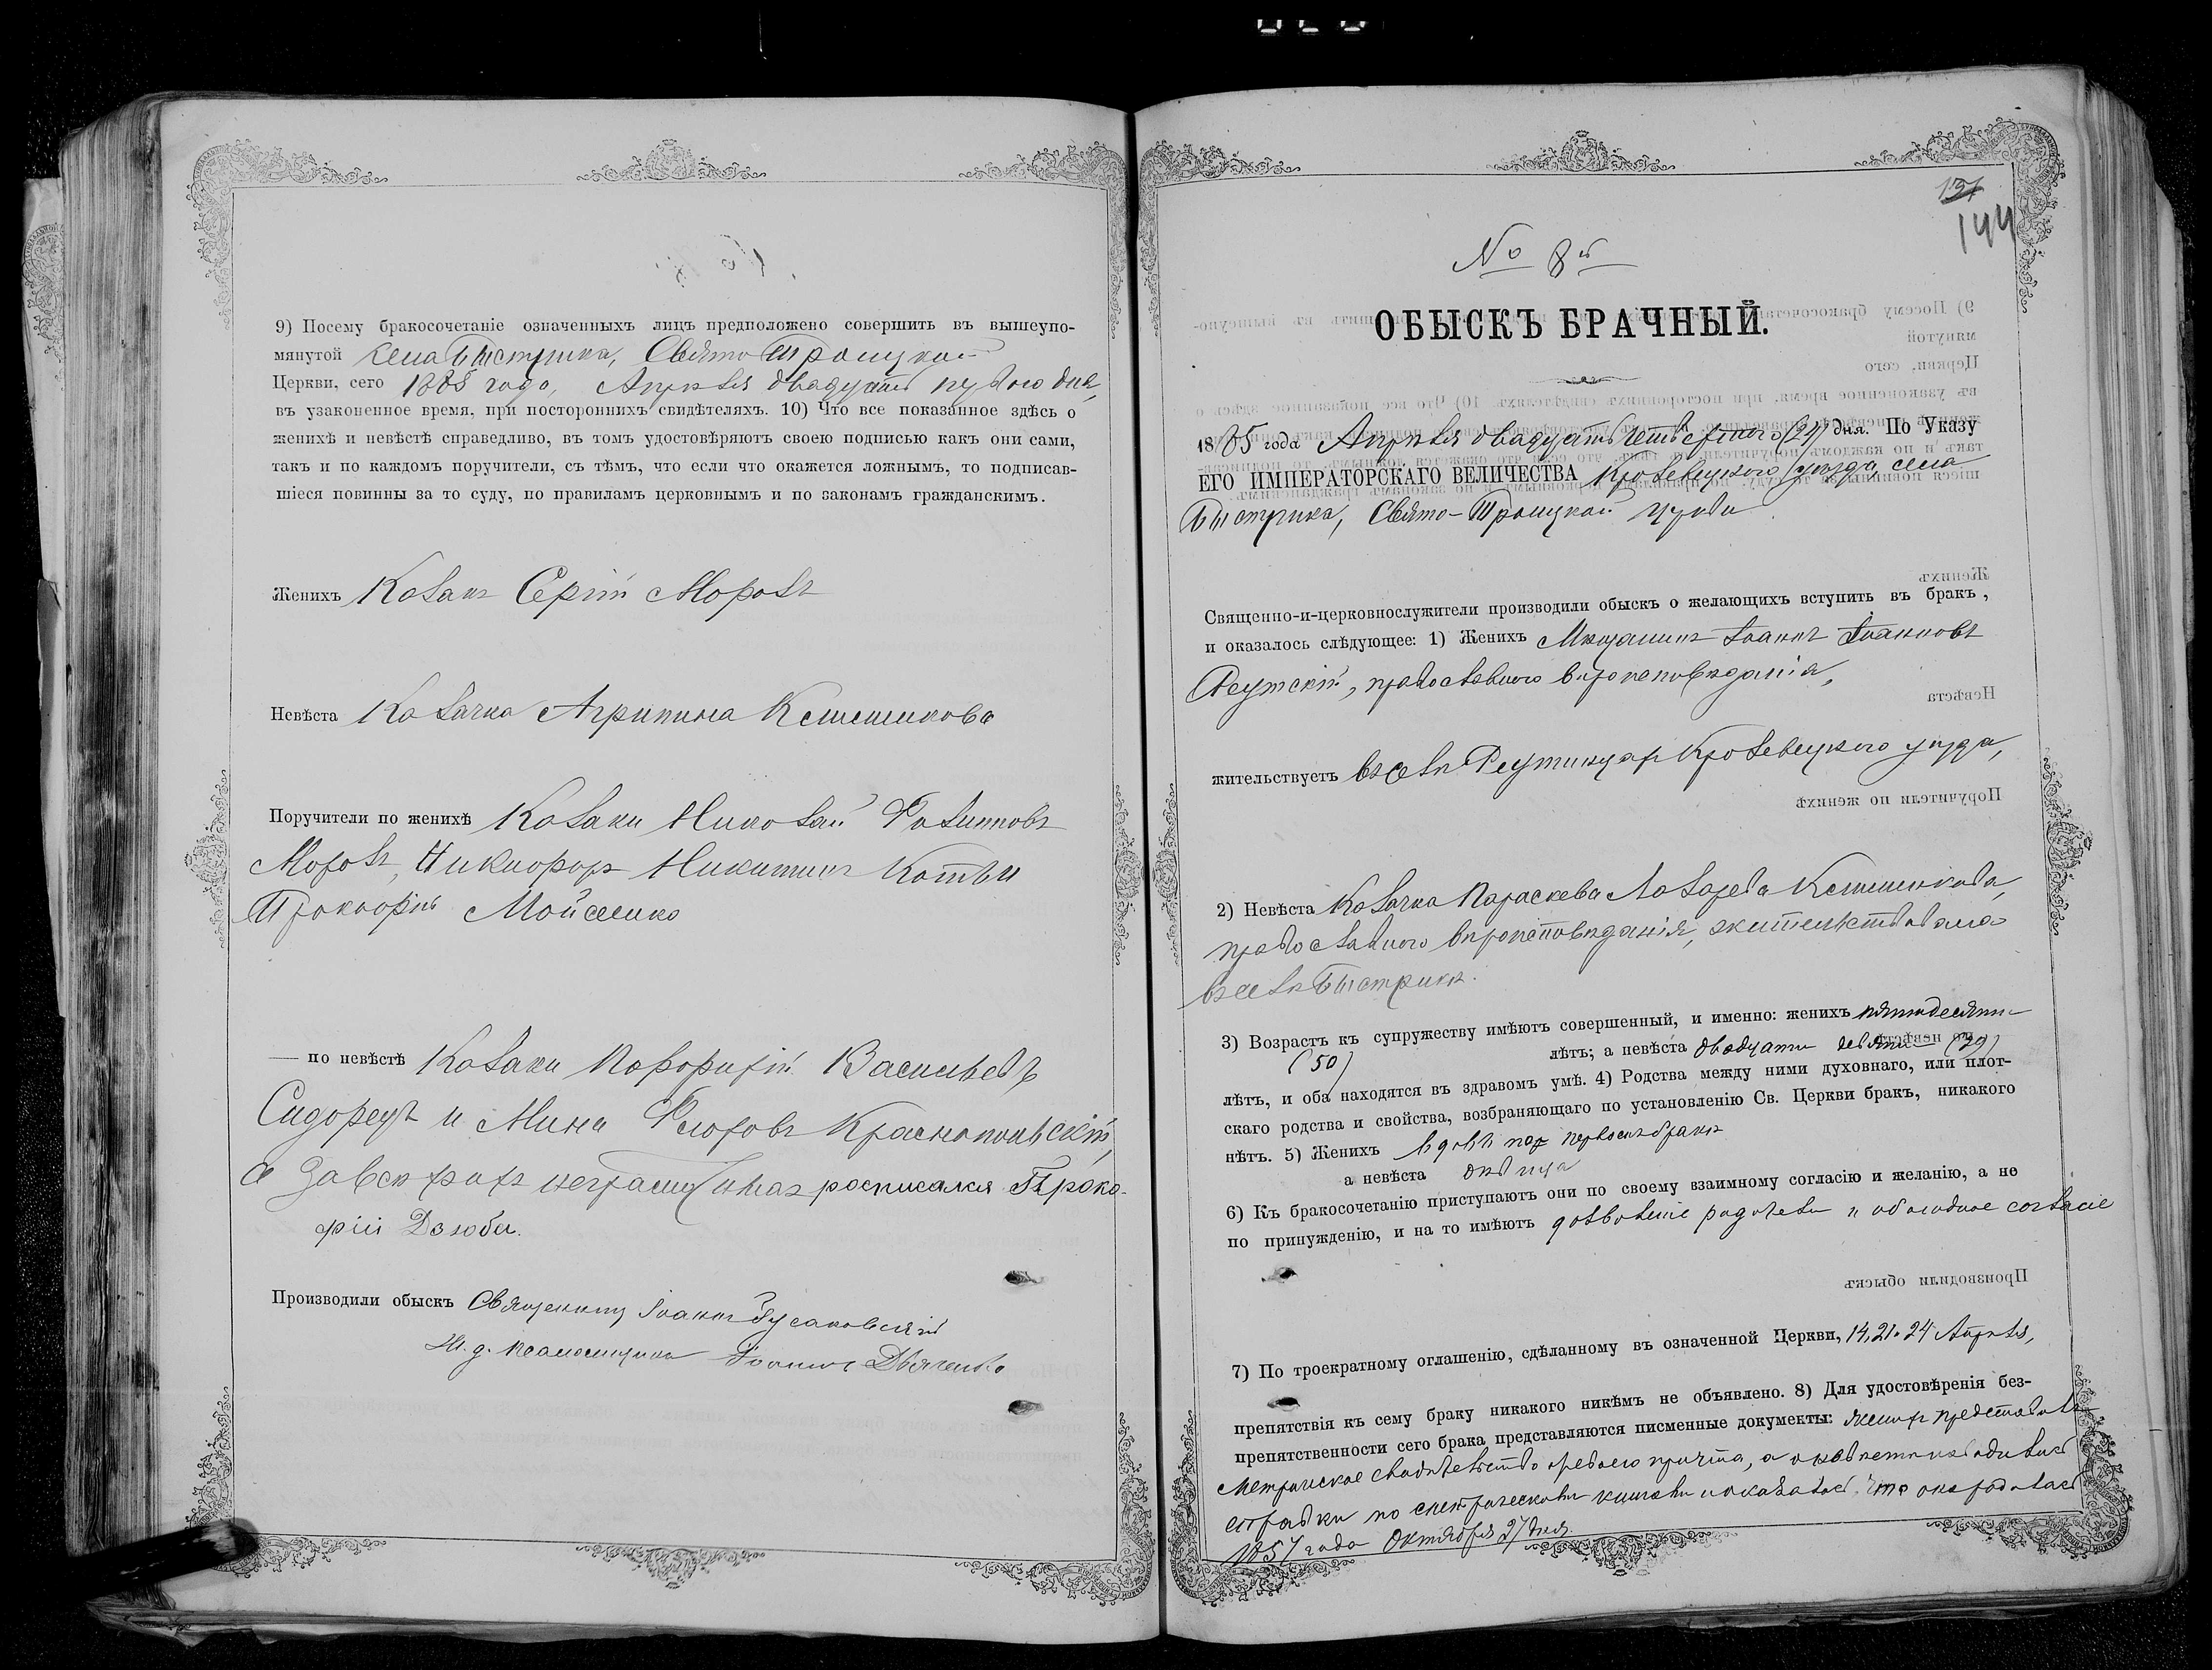 9) Посему бракосочетаніе означенныхъ лицъ предположено совершить въ вышеупо-
мянутой села Быстрика, Свято Троицкой
Церкви, сего 1885 года, Апрѣля двадцать первого дня,
въ узаконенное время, при постороннихъ свидѣтеляхъ. 10) Что все показанное здѣсь о
женихѣ и невѣстѣ справедливо, въ томъ удостовѣряютъ своею подписью какъ они сами,
такъ и по каждомъ поручители, съ тѣмъ, что если что окажется ложнымъ, то подписав-
шіеся повинны за то суду, по правиламъ церковнымъ и по законамъ гражданскимъ.
Женихъ Козакъ Сергій Морозъ
Невѣста Козачка Агрипина Клишикова
Поручители по женихѣ Козаки Николай Филиповъ
Морозъ, Никифоръ Никитинъ Котъ и
Прокофій Мойсеенко
— по невѣстѣ Козаки Порфирій Васильевъ
Сидорецъ и Мина Флоровъ Краснопольскій,
а за всѣхъ ихъ неграмотныхъ росписался Проко-
фій Дзюба.
Производили обыскъ Священникъ Іоаннъ Гусаковскій
И. д. псаломщика Іоаннъ Дьяченко
137
144
№ 8й
ОБЫСКЪ БРАЧНЫЙ.
1885 года Апрѣля двадцать четвертого (24) дня. По Указу
ЕГО ИМПЕРАТОРСКАГО ВЕЛИЧЕСТВА Кролевецкого уѣзда, села
Быстрика, Свято-Троицкой церкви
Священно-и-церковнослужители производили обыскъ о желающихъ вступить въ бракъ,
и оказалось слѣдующее: 1) Женихъ Мѣщанинъ Іоаннъ Іоанновъ
Реутскій, православного вѣроисповѣданія,
жительствуетъ въ селѣ Реутинцахъ Кролевецкого уѣзда,
2) Невѣста Козачка Параскева Лазарева Клишикова,
православного вѣроисповѣданія, жительствовала
въ селѣ Быстрикѣ.
3) Возрастъ къ супружеству имѣютъ совершенный, и именно: женихъ пятидесяти
(50) лѣтъ; а невѣста двадцати девяти (29)
лѣтъ, и оба находятся въ здравомъ умѣ. 4) Родства между ними духовнаго, или плот-
скаго родства и свойства, возбраняющаго по установленію Св. Церкви бракъ, никакого
нѣтъ. 5) Женихъ вдовъ послѣ первого брака
а невѣста дѣвица
6) Къ бракосочетанію приступаютъ они по своему взаимному согласію и желанію, а не
по принужденію, и на то имѣютъ дозволеніе родителей и обоюдное согласіе
7) По троекратному оглашенію, сдѣланному въ означенной Церкви, 14, 21 и 24 Апрѣля,
препятствія къ сему браку никакого никѣмъ не объявлено. 8) Для удостовѣренія без-
препятственности сего брака представляются писменные документы: женихъ представилъ
Метрическое свидѣтельство причта, а о невѣстѣ наводились
справки по метрическимъ книгамъ и оказалось, что она родилась
1857 года Октября 27 дня.